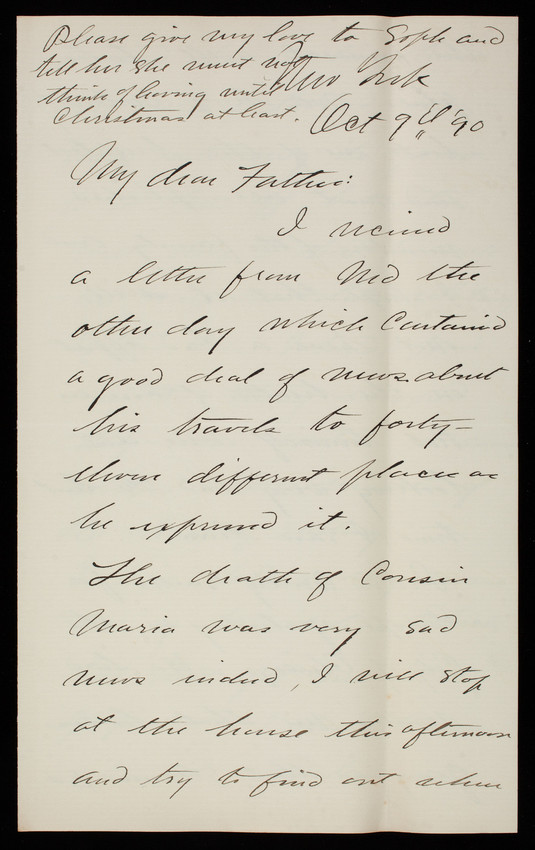 Please give my love to Soph and
tell her she must not
think of leaving until
Christmas at least.
New York
Oct 9th '90
My dear Father:
I received
a letter from Ned the
other day which contained
a good deal of news about
his travels to forty-
eleven different places as
he expressed it.
The death of Cousin
Maria was very sad
news indeed, I will stop
at the house this afternoon
and try to find out when